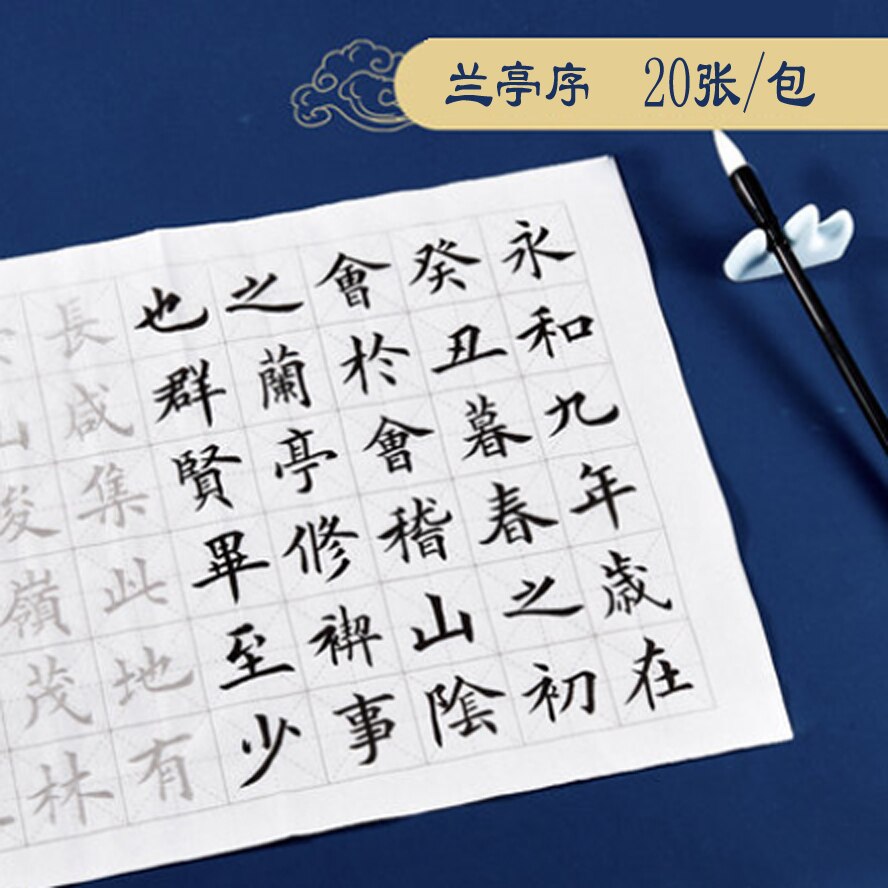 兰亭序 20张/包
永和九年歲在
癸丑暮春之初
會於會稽山陰
之蘭亭修禊事
也群賢畢至少
長咸集此地有
山峻嶺茂林